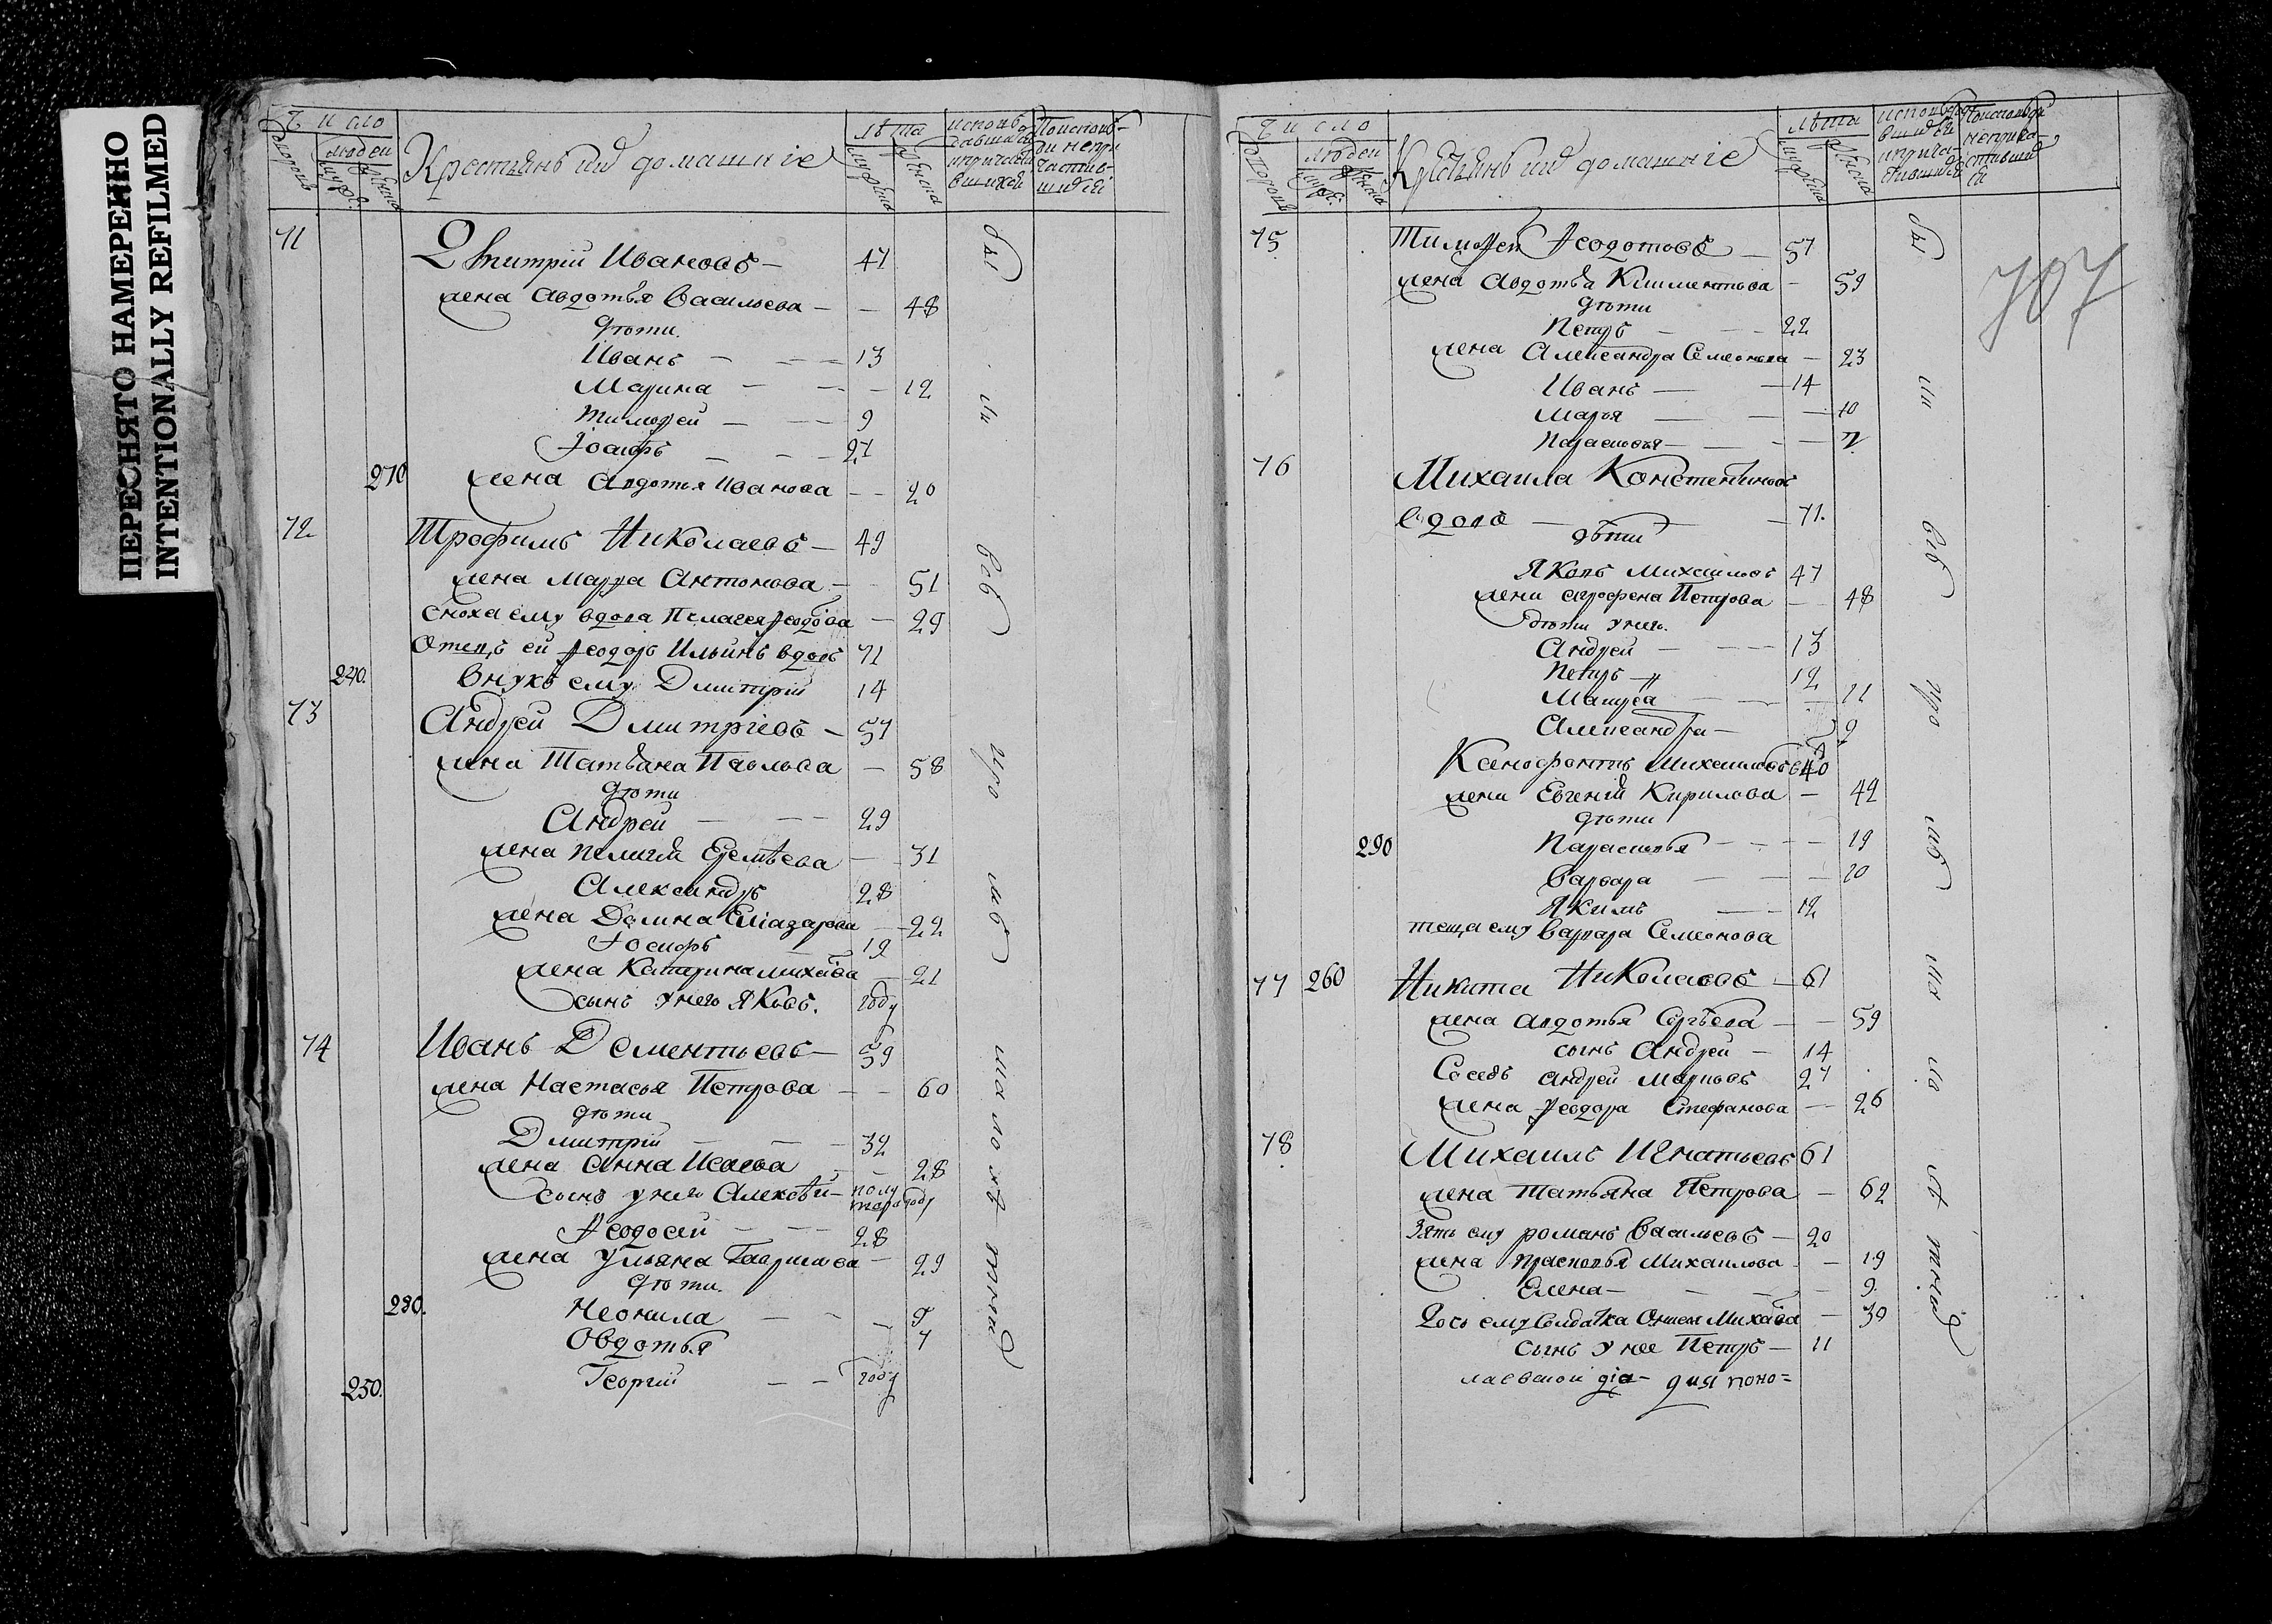 ПЕРЕСНЯТО НАМЕРЕННО
INTENTIONALLY REFILMED
Число
людеи
Крестьянъ ихъ домашніе
лѣта
71 Дмитріи Ивановъ — 47
жена Авдотья Васильева — 48
дѣти
Иванъ — 13
Марина — 12
Тимоѳеи — 9
Іосифъ — 27
270 жена Авдотья Иванова — 20
72 Трофимъ Николаевъ — 49
жена Марѳа Антонова — 51
сноха ему вдова Пелагея — 29
Отецъ еи Ѳеодоръ Ильинъ вдовъ 71
240. Внукъ ему Дмитріи 14
73 Андреи Дмитріевъ — 57
жена Татьяна Павлова — 58
дѣти
Андреи — 29
жена Пелагея Еремѣева — 31
Александръ 28
жена Домна Елиазарова — 22
Іосифъ — 19
жена Катерина — 21
сынъ у него Яковъ. году
74 Иванъ Дементьевъ — 59
жена Настасья Петрова — 60
дѣти
Дмитріи — 32
жена Анна Исаева — 28
сынъ у него Алексѣи — полутора году
Ѳеодосеи — 28
жена Ульяна Гаврилова — 29
дѣти.
280. Неонила — 9
Овдотья 7
250. Георгіи — году
Число
людеи
Крестьянъ ихъ домашніе
лѣта
707
75 Тимоѳеи Ѳеодотовъ — 57
жена Авдотья Климентьева — 59
дѣти
Петръ — 22
жена Александра Семеонова — 23
Иванъ — 14
Марья — 10
Парасковья — 7
76 Михаила Констентиновъ
вдовъ — 71.
дѣти
Яковъ Михаиловъ 47
жена Евросена Петрова — 48
дѣти у него.
Андреи — 13
Петръ — 12
— 11
Александра — 9
Ксенофонтъ Михаиловъ 40
жена Евгенія Кирилова — 42
дѣти
290 Парасковья — 19
Варвара — 20
Якимъ — 12
теща ему Варвара Семеонова
77 260 Никита Николаевъ — 61
жена Авдотья Сергѣева — 59
сынъ Андреи — 14
Соседъ Андреи Марковъ 27
жена Ѳеодора Стефанова — 26
78 Михаилъ Игнатьевъ 61
жена Татьяна Петрова — 62
Зять ему Романъ Васильевъ — 20
жена Прасковья Михаилова — 19
Елена — 9
Дочь ему солдатка — 30
сынъ у нее Петръ — 11
лаевскои діа- дия поно=